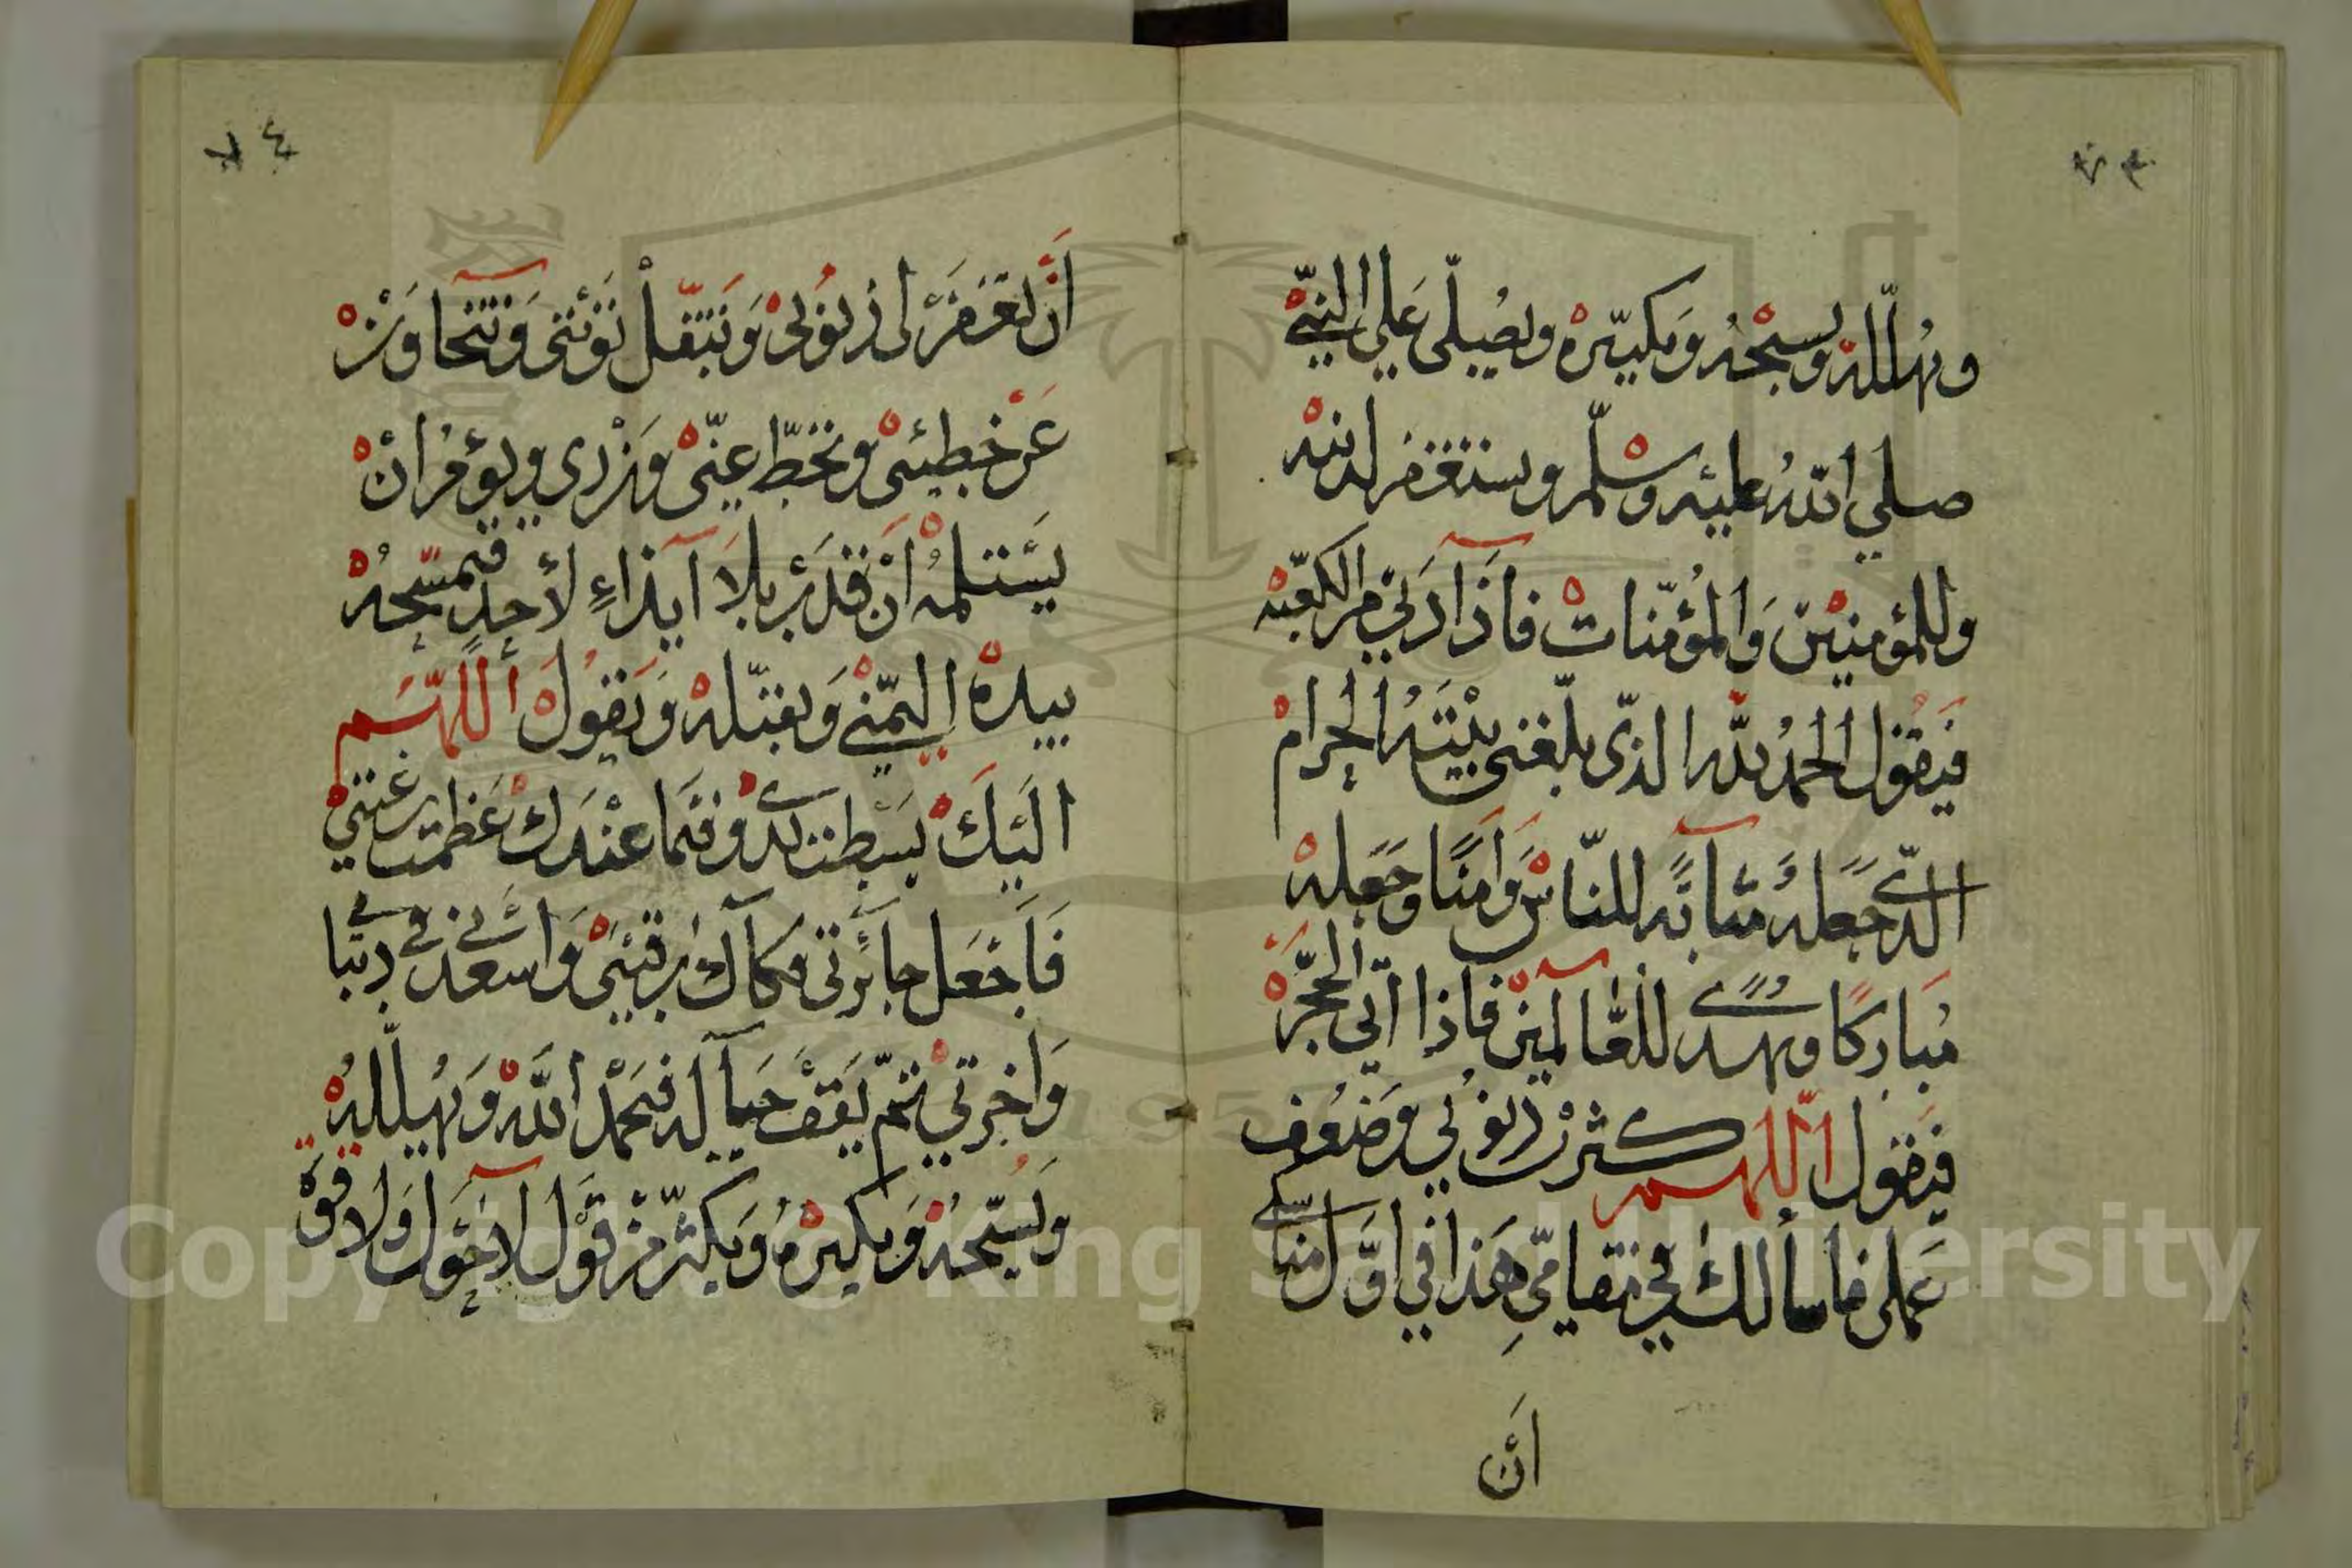 ويهلله ويسبحه ويكبره ويصلي على النبي
صلي الله عليه وسلم ويستغفر لدينه
وللمؤمنين والمؤمنات فاذا دني من الكعبه
فيقول الحمد لله الذي بلغني بيته الحرام
الذي جعله مثابه للناس وامنا وجعله
مباركا وهدى للعالمين فاذا اتى الحجر
فيقول اللهم كثرت ذنوبي وضعف
عملى فاسألك في مقامي هذا في اول مناسكي
أن
أن تغفر لى ذنوبي وتتقبل توبتى وتتجاوز
عن خطيئتى وتحط عني وزرى ويؤمر ان
يستلمه ان قدر بلا ايذاء لأحد فيمسحه
بيده اليمنى ويقبله ويقول أللهم
اليك بسطت يدي وفيما عندك عظمت رغبتي
فاجعل جائزتى فكاك رقبتى واسعدني في دنيا
واخرتي ثم يقف حياله فيحمد الله ويهلله
ويسبحه ويكبره ويكثر من قول لا حول ولا قوة
Copyright © King Saud University